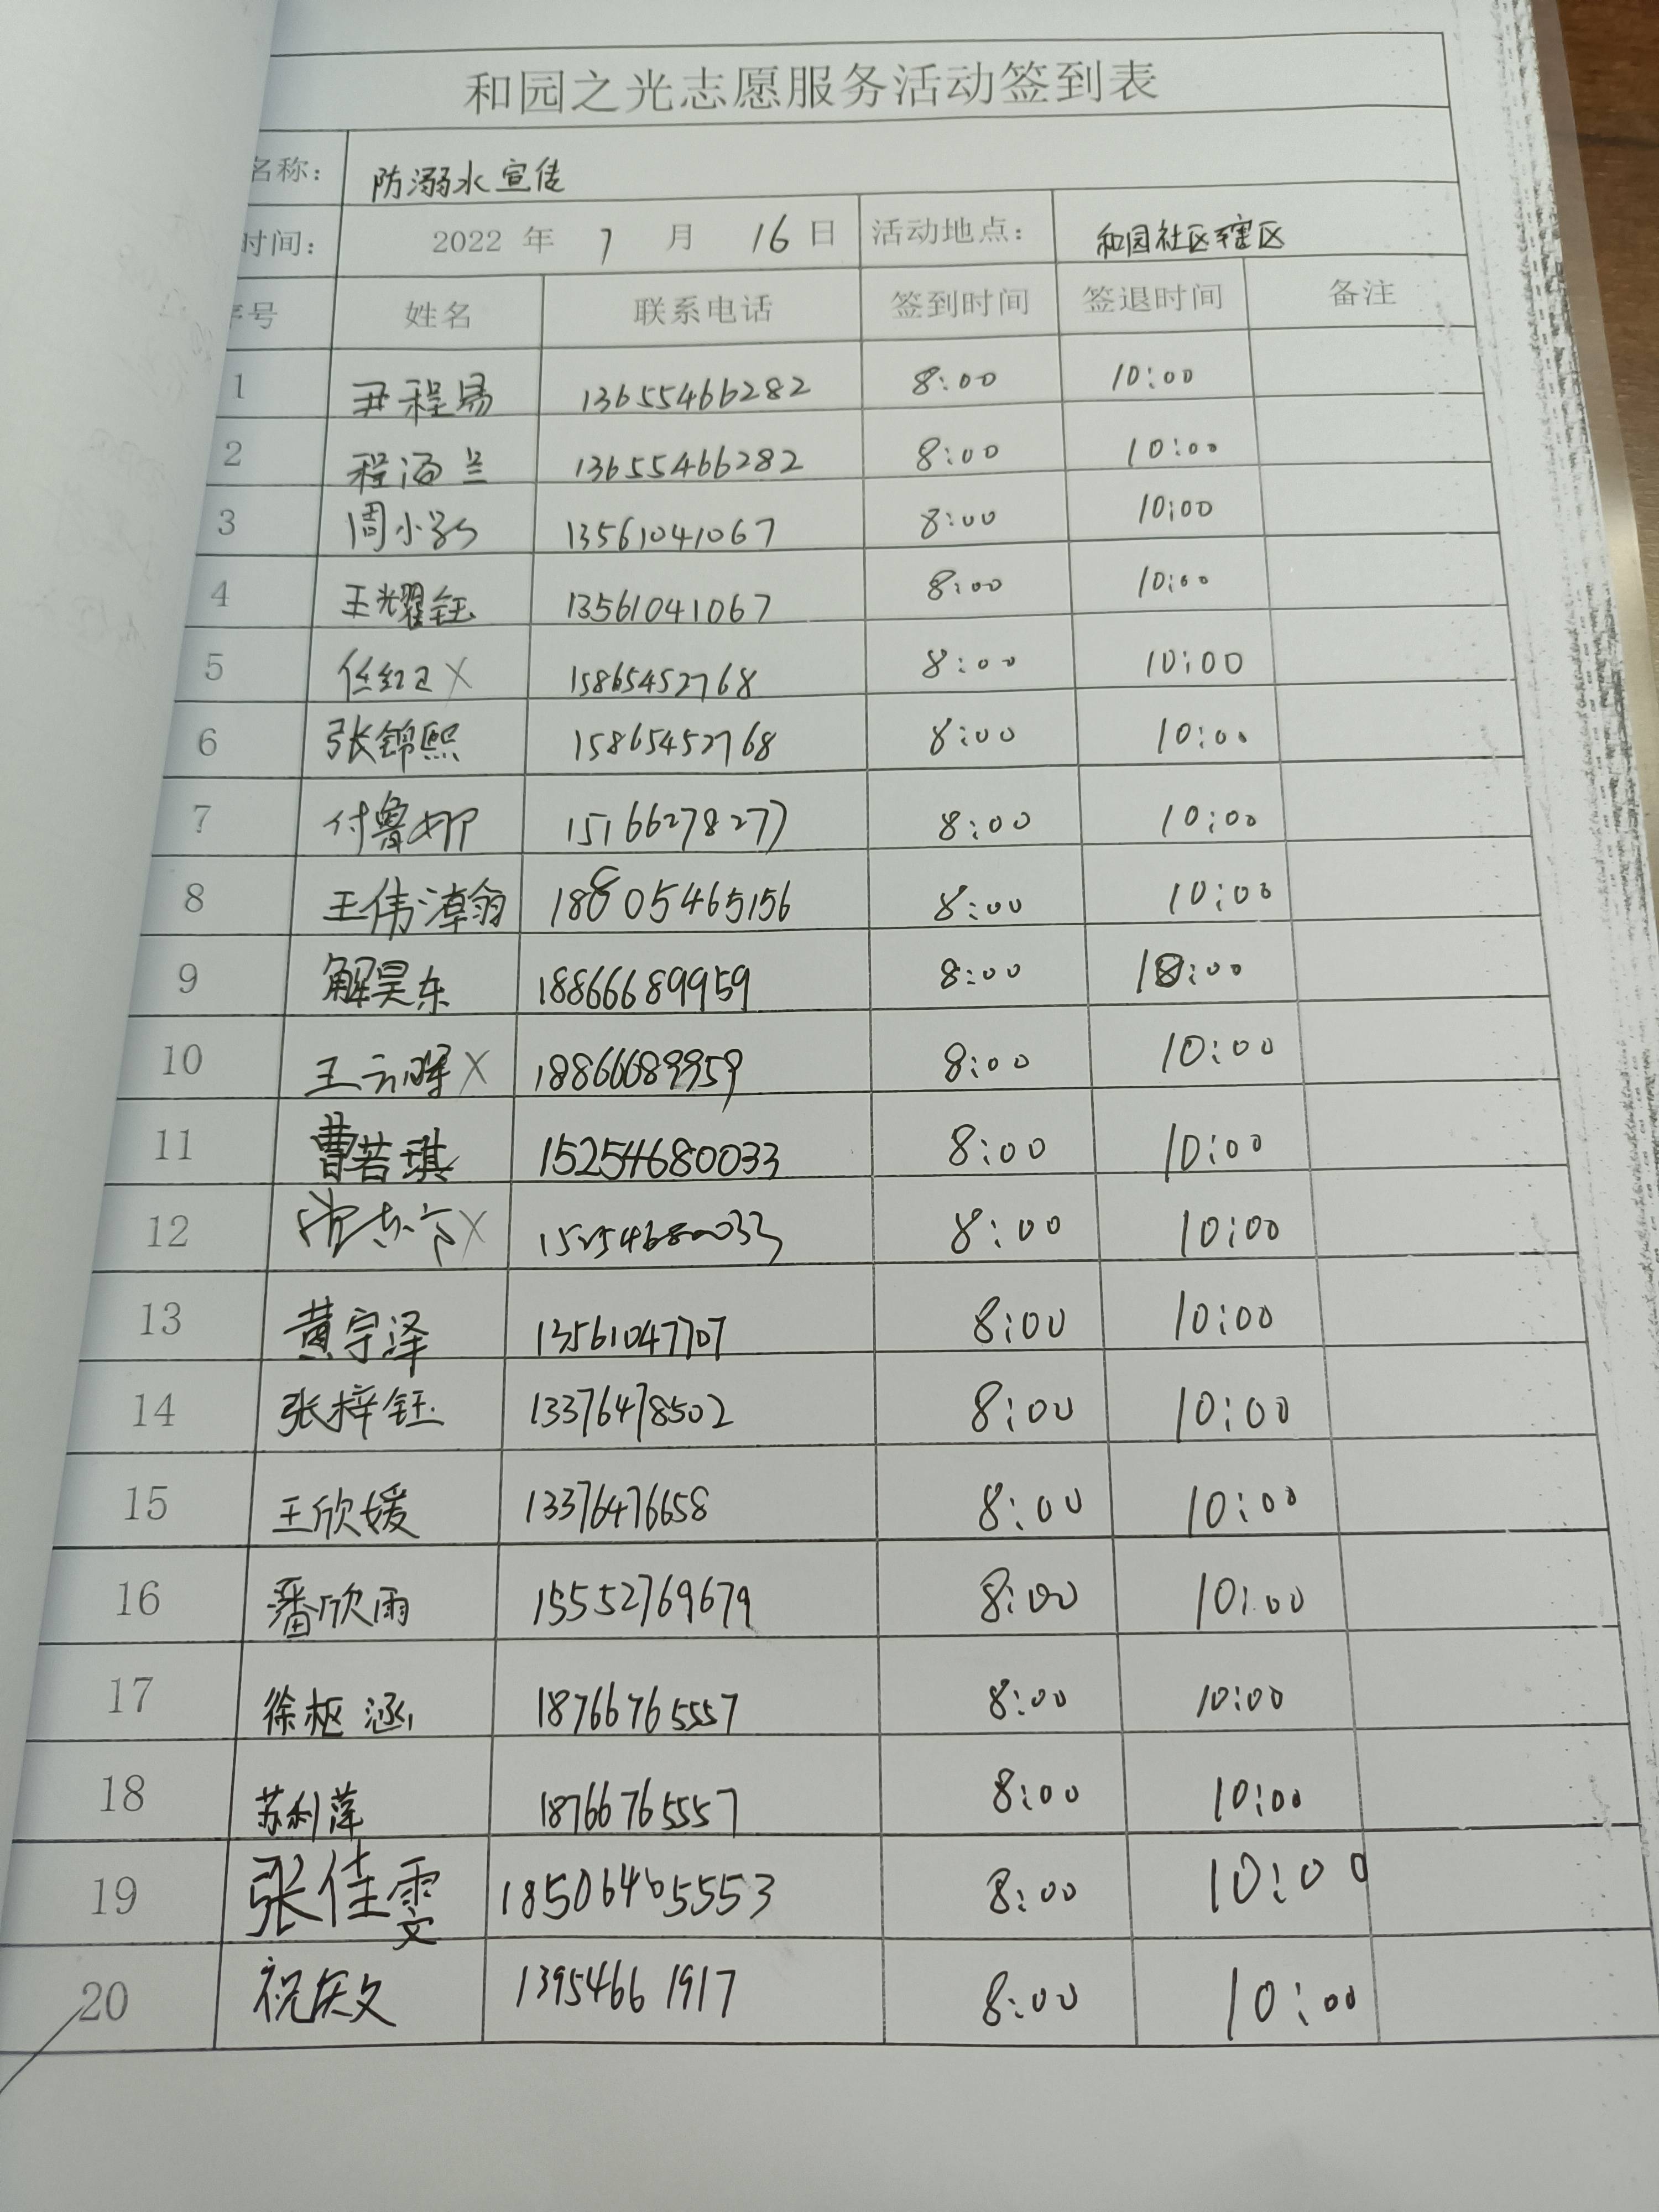 和园之光志愿服务活动签到表
名称： 防溺水宣传
时间： 2022 年 7 月 16 日 活动地点： 和园社区辖区
序号 姓名 联系电话 签到时间 签退时间 备注
1 尹程易 13655466282 8:00 10:00
2 程海兰 13655466282 8:00 10:00
3 周小 13561041067 8:00 10:00
4 王耀钰 13561041067 8:00 10:00
5 任红卫 X 15865452768 8:00 10:00
6 张锦熙 15865452768 8:00 10:00
7 付鲁娜 15166278277 8:00 10:00
8 王伟漳翰 18805465156 8:00 10:00
9 解昊东 18866689959 8:00 10:00
10 王云 X 18866689959 8:00 10:00
11 曹若琪 15254680033 8:00 10:00
12 X 15254680033 8:00 10:00
13 黄宇泽 13561047707 8:00 10:00
14 张梓钰 13376478502 8:00 10:00
15 王欣媛 13376476658 8:00 10:00
16 潘欣雨 15552769679 8:00 10:00
17 徐枢涵 18766765557 8:00 10:00
18 苏利萍 18766765557 8:00 10:00
19 张佳雯 18506465553 8:00 10:00
20 祝庆文 13954661917 8:00 10:00